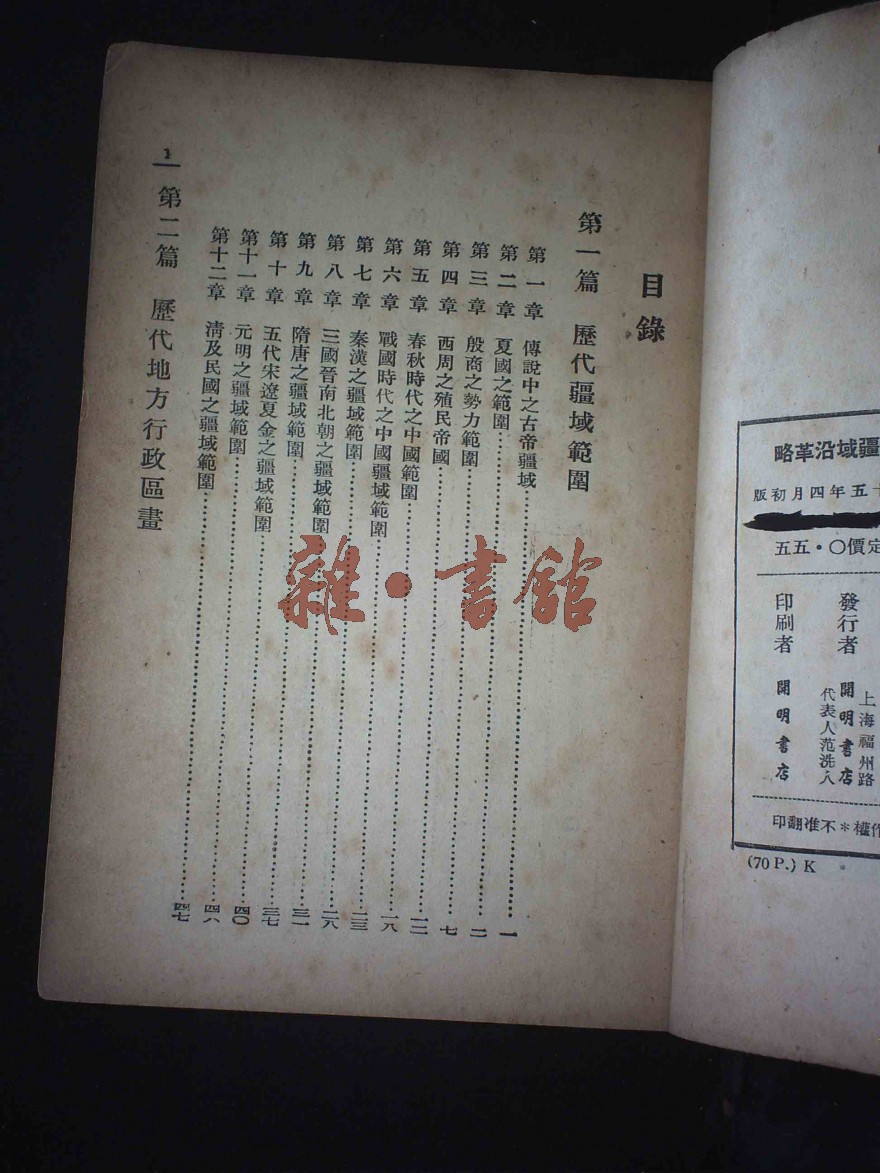 目錄
第一篇 歷代疆域範圍
第一章 傳說中之古帝疆域……一
第二章 夏國之範圍……二
第三章 殷商之勢力範圍……七
第四章 西周之殖民帝國……一二
第五章 春秋時代之中國範圍……一八
第六章 戰國時代之中國疆域範圍……二三
第七章 秦漢之疆域範圍……二八
第八章 三國晉南北朝之疆域範圍……三一
第九章 隋唐之疆域範圍……三七
第十章 五代宋遼夏金之疆域範圍……四〇
第十一章 元明之疆域範圍……四六
第十二章 清及民國之疆域範圍……四七
第二篇 歷代地方行政區畫
1
雜·書館
疆域沿革略
五年四月初版
定價〇·五五
上海福州路
發行者 開明書店
代表人范洗人
印刷者 開明書店
作權＊不准翻印
(70 P.) K